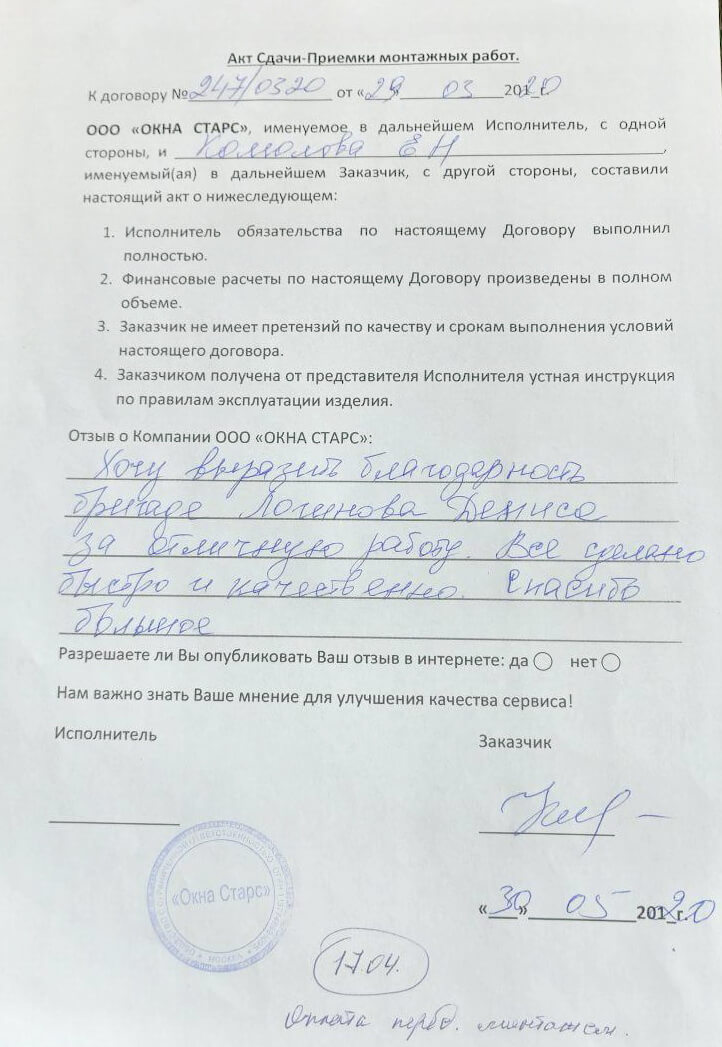 Акт Сдачи-Приемки монтажных работ.
К договору № 247/0320 от «29» 03 2020
ООО «ОКНА СТАРС», именуемое в дальнейшем Исполнитель, с одной
стороны, и Комолова ЕН,
именуемый(ая) в дальнейшем Заказчик, с другой стороны, составили
настоящий акт о нижеследующем:
1. Исполнитель обязательства по настоящему Договору выполнил
полностью.
2. Финансовые расчеты по настоящему Договору произведены в полном
объеме.
3. Заказчик не имеет претензий по качеству и срокам выполнения условий
настоящего договора.
4. Заказчиком получена от представителя Исполнителя устная инструкция
по правилам эксплуатации изделия.
Отзыв о Компании ООО «ОКНА СТАРС»:
Хочу выразить благодарность
бригаде Логинова Дениса
за отличную работу. Все сделано
быстро и качественно. Спасибо
большое
Разрешаете ли Вы опубликовать Ваш отзыв в интернете: да нет
Нам важно знать Ваше мнение для улучшения качества сервиса!
Исполнитель
Заказчик
«Окна Старс»
«30» 05 2020
17.04.
Оплата перед. монтажом.